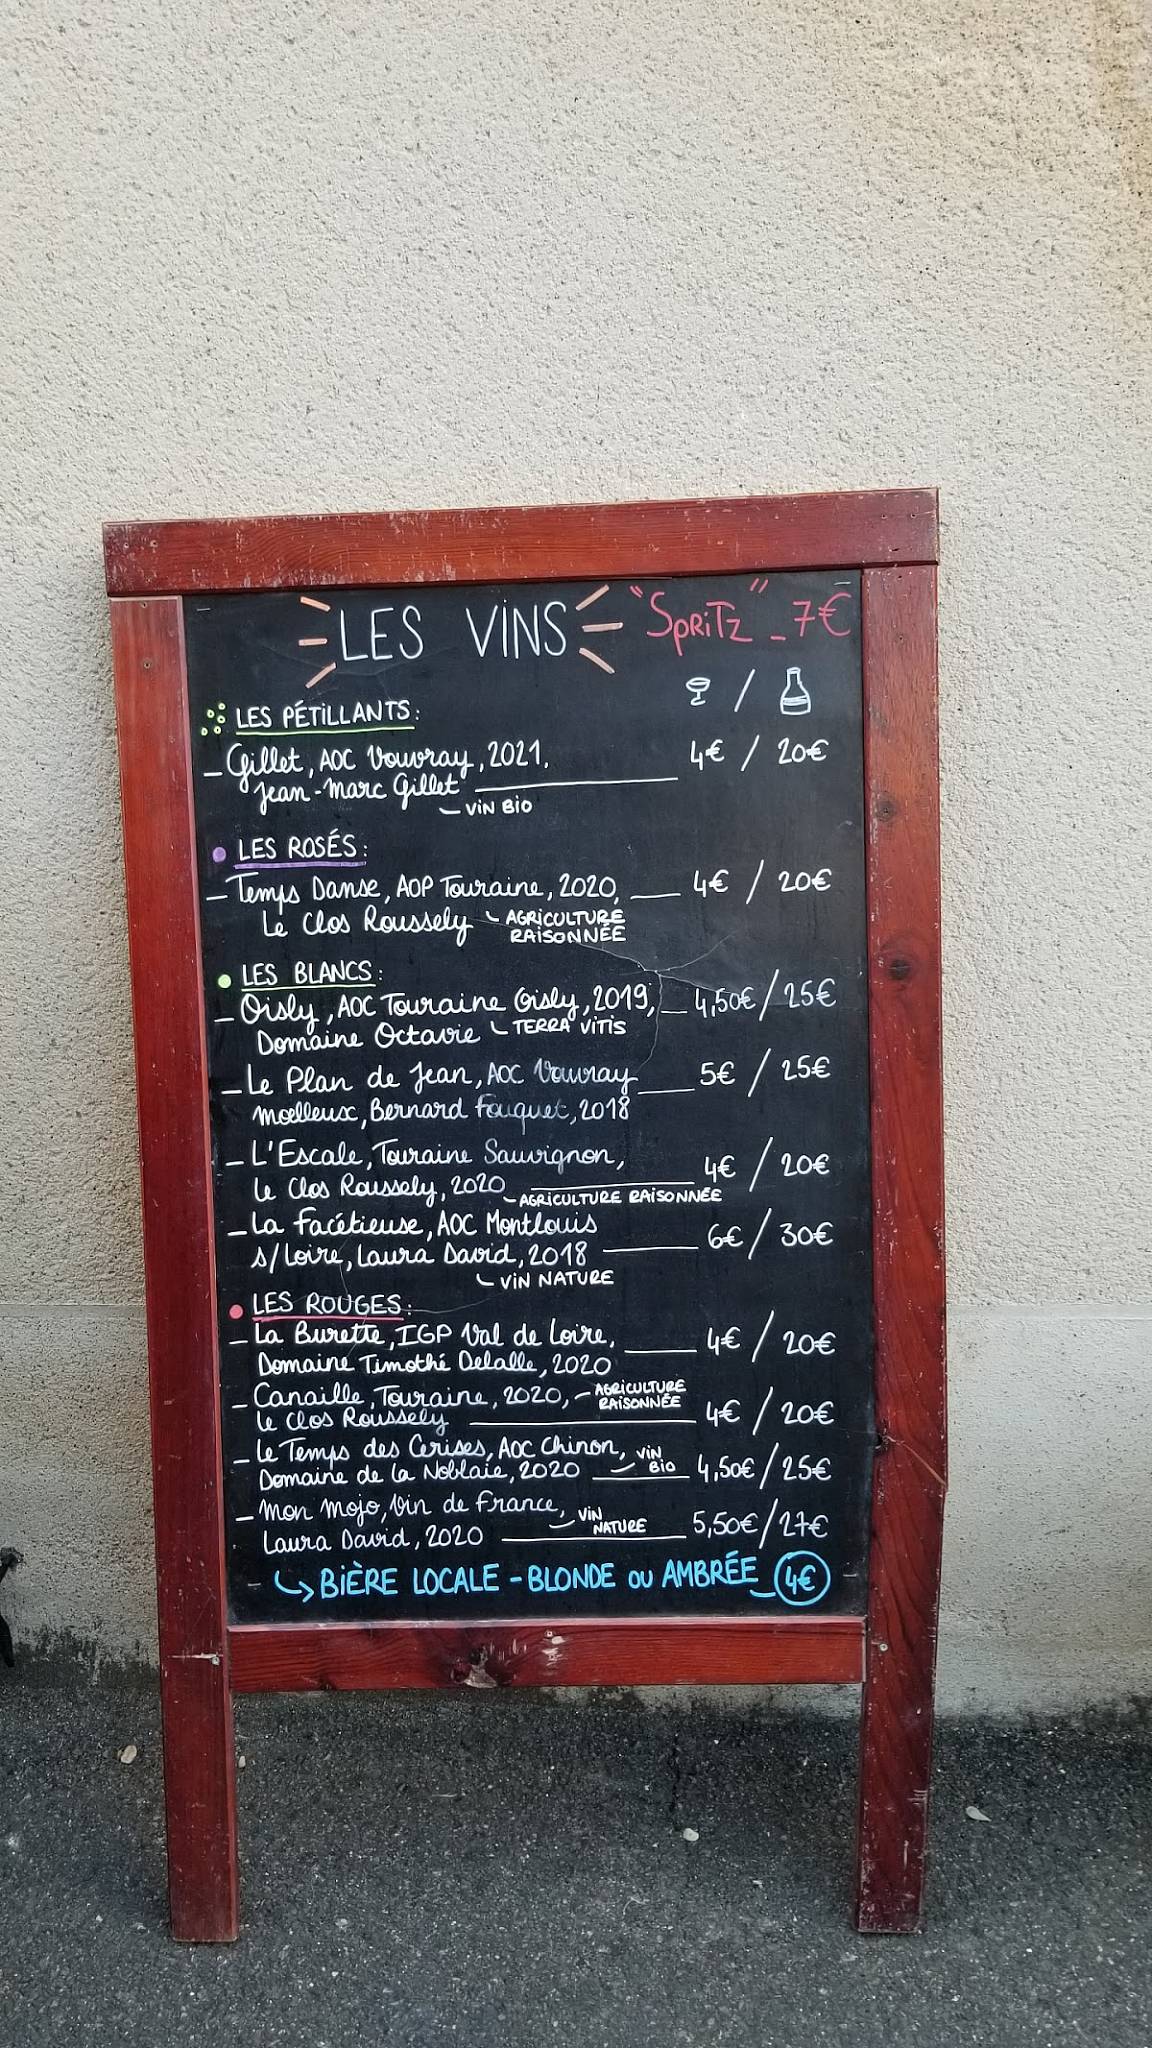 LES VINS "SPRITZ" - 7€
LES PÉTILLANTS:
/
- Gillet, AOC Vouvray, 2021, 4€ / 20€
Jean-Marc Gillet
VIN BIO
LES ROSÉS:
- Temps Danse, AOP Touraine, 2020, 4€ / 20€
Le Clos Roussely AGRICULTURE
RAISONNÉE
LES BLANCS:
- Oisly, AOC Touraine Oisly, 2019, 4,50€ / 25€
Domaine Octavie TERRA VITIS
- Le Plan de Jean, AOC Vouvray 5€ / 25€
Moelleux, Bernard Fouquet, 2018
- L'Escale, Touraine Sauvignon, 4€ / 20€
Le Clos Roussely, 2020
AGRICULTURE RAISONNÉE
- La Facétieuse, AOC Montlouis 6€ / 30€
s/Loire, Laura David, 2018
VIN NATURE
LES ROUGES:
- La Burette, IGP Val de Loire, 4€ / 20€
Domaine Timothé Delalle, 2020
- Canaille, Touraine, 2020, AGRICULTURE
RAISONNÉE
Le Clos Roussely 4€ / 20€
- Le Temps des Cerises, AOC Chinon, VIN
BIO
Domaine de la Noblaie, 2020 4,50€ / 25€
- Mon Mojo, Vin de France, VIN
NATURE
Laura David, 2020 5,50€ / 27€
BIÈRE LOCALE - BLONDE OU AMBRÉE - 4€